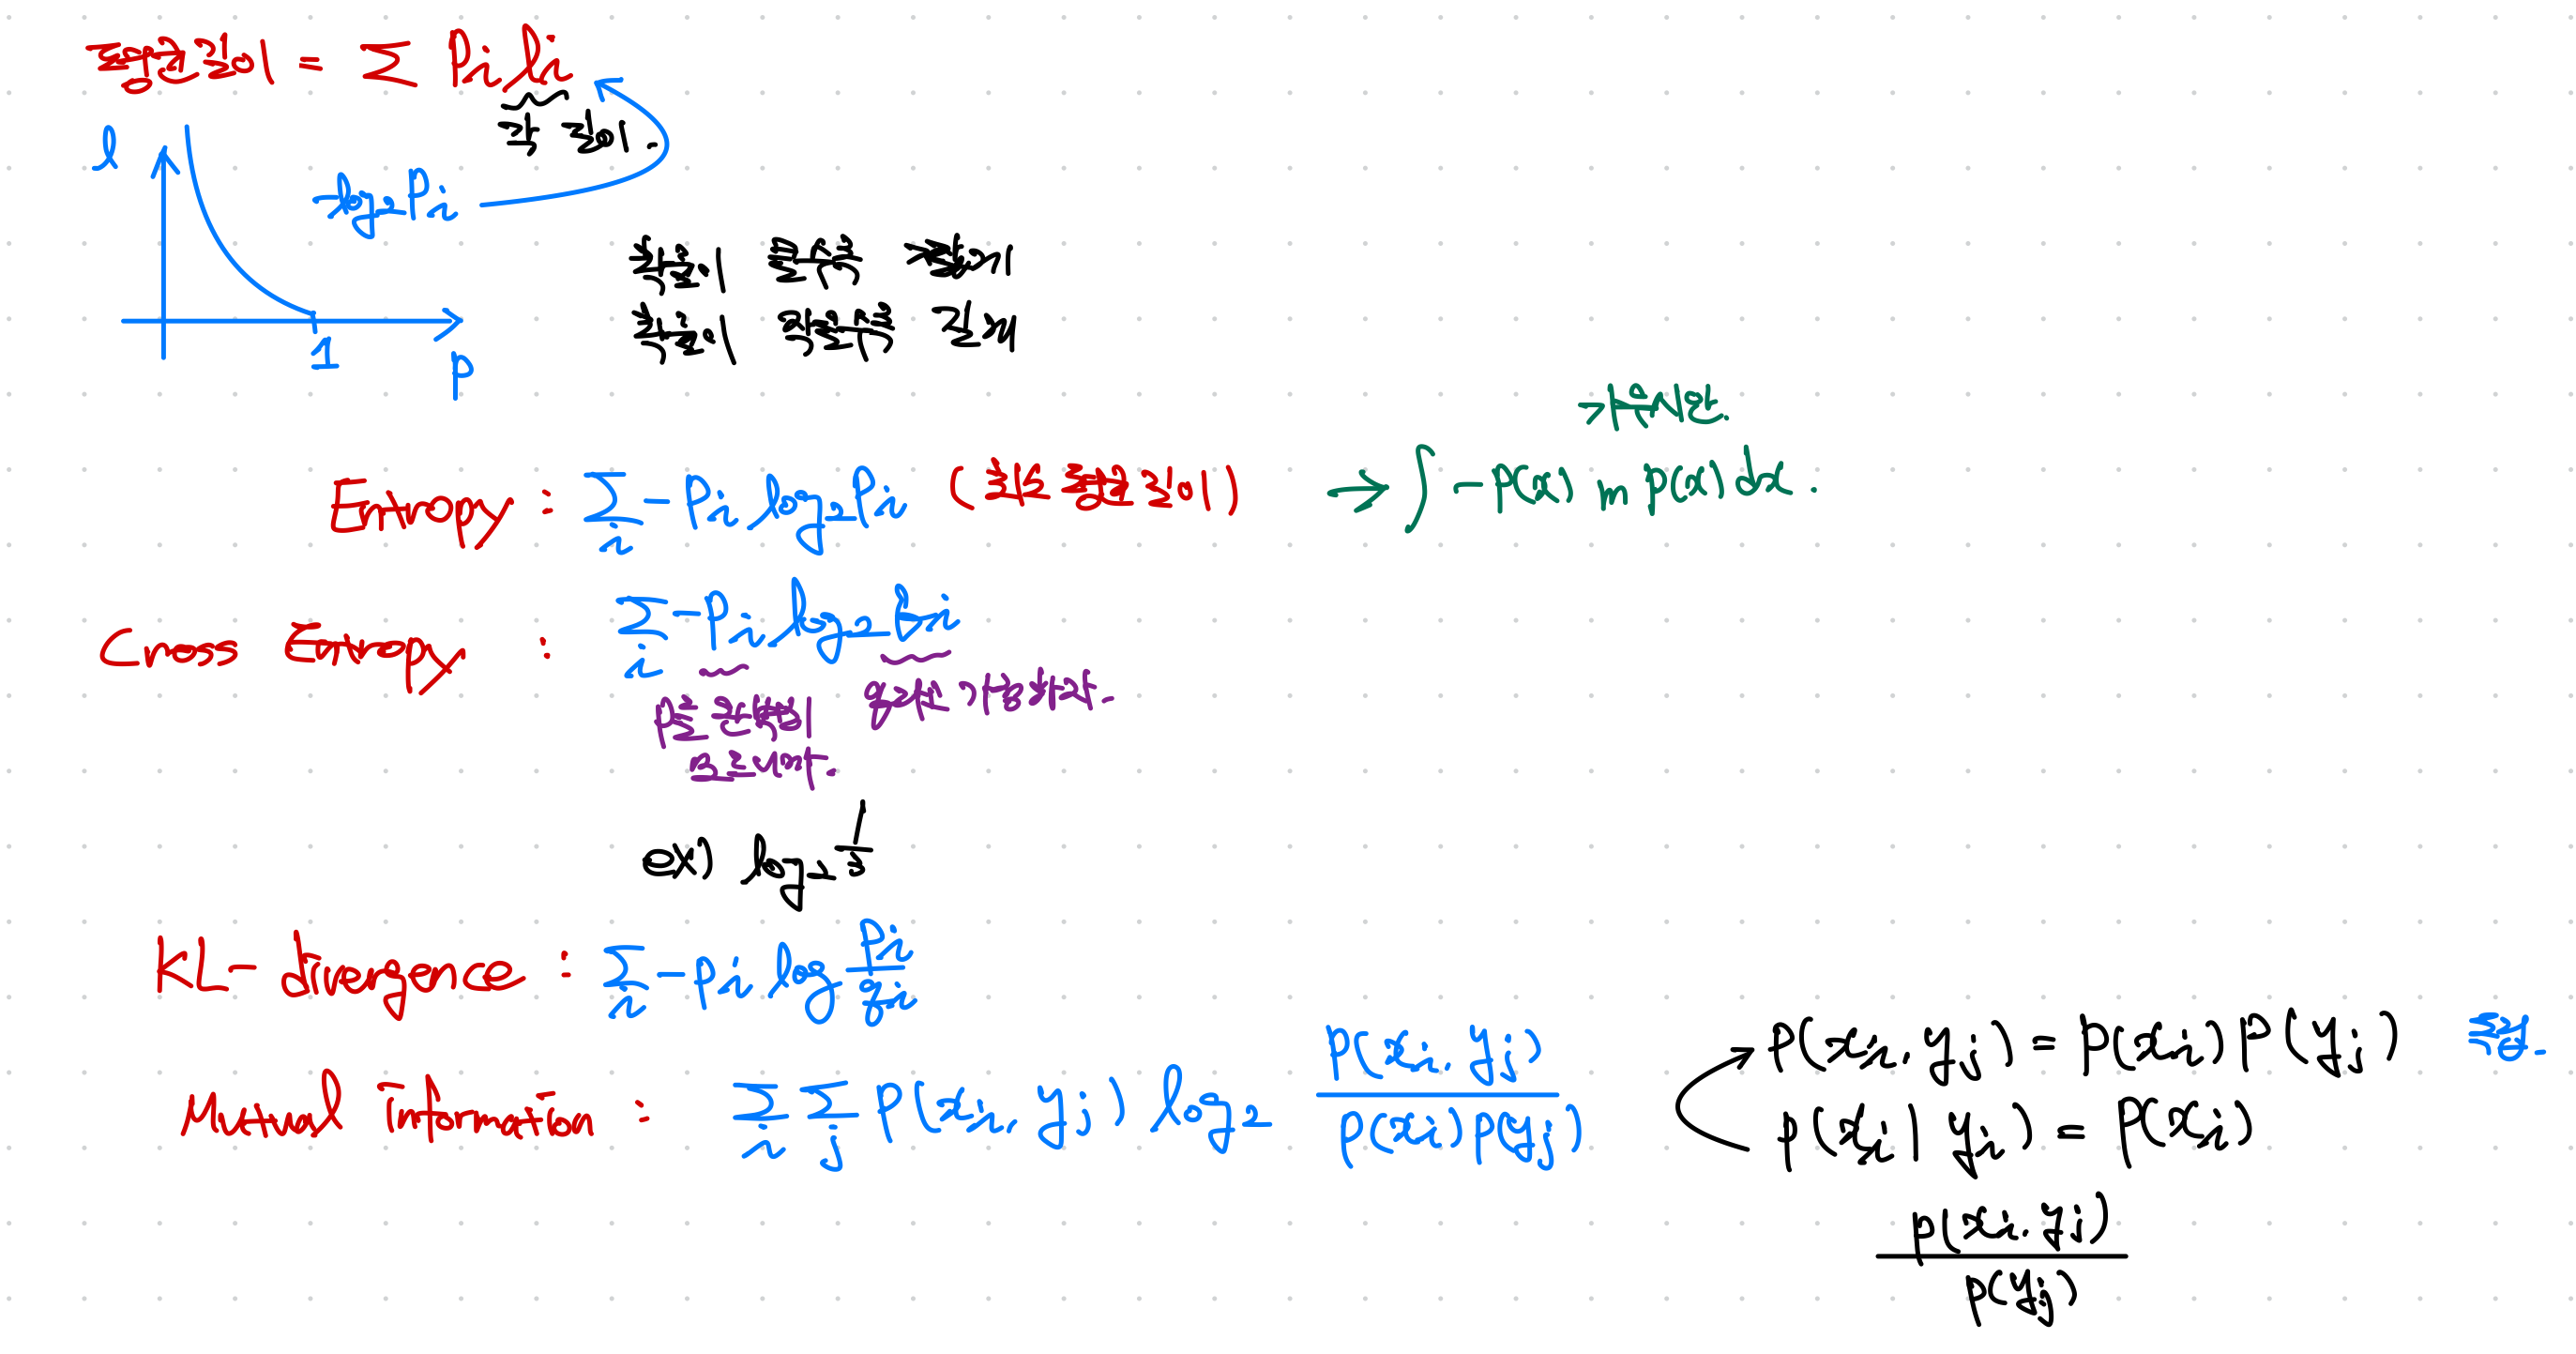 평균길이 = Σ Pi li
각 길이.
l
-log₂Pi
1
p
확률이 클수록 짧게
확률이 작을수록 길게
→가우시안.
Entropy : Σ i - Pi log₂Pi (최소 평균 길이) → ∫ -P(x) ln P(x) dx.
Cross Entropy : Σ i -Pi log₂ qi
P를 완벽히 모르니까.
ex) log₂ 1/3
KL-divergence : Σ i -pi log Pi/qi
Mutual information : Σ i Σ j P(xi, yj) log₂ P(xi, yj) / P(xi) P(yj)
P(xi, yj) = P(xi) P(yj) 독립.
P(xi | yi) = P(xi)
P(xi, yj) / P(yj)